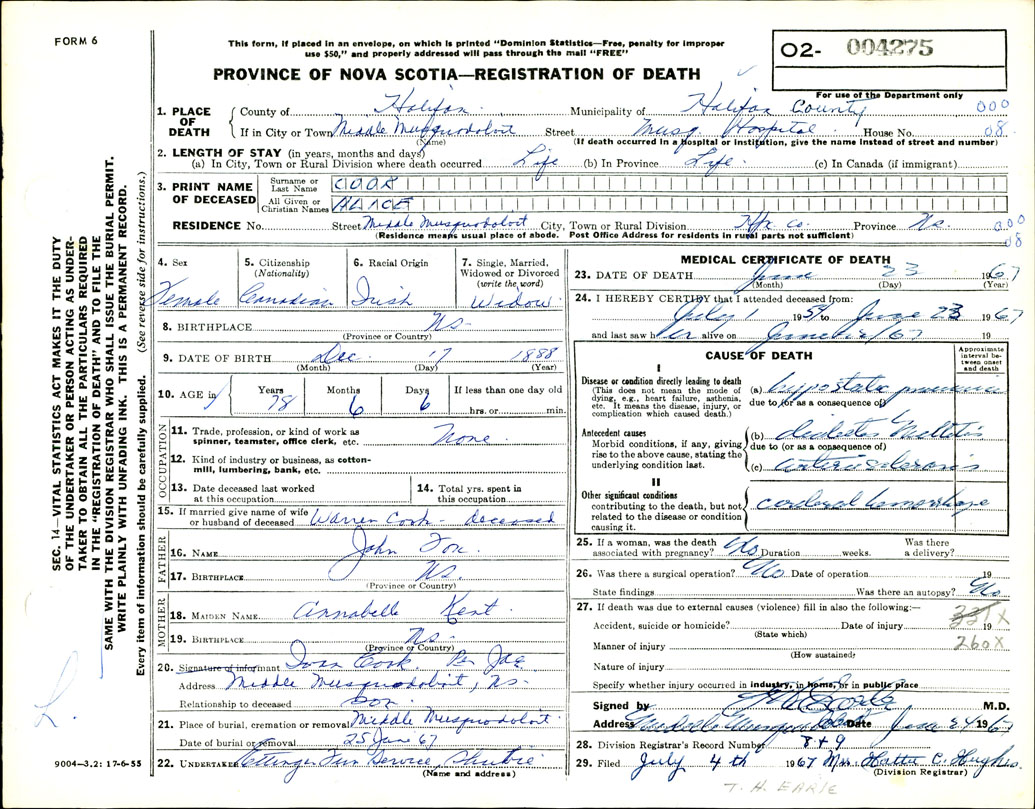 FORM 6
This form, if placed in an envelope, on which is printed "Dominion Statistics—Free, penalty for improper
use $50," and properly addressed will pass through the mail "FREE"
O2- 004275
PROVINCE OF NOVA SCOTIA—REGISTRATION OF DEATH
For use of the Department only
1. PLACE OF DEATH
County of Halifax Municipality of Halifax County 000
If in City or Town Middle Musquodoboit Street Musq. Hospital House No. 08
(Name) (If death occurred in a hospital or institution, give the name instead of street and number)
2. LENGTH OF STAY (in years, months and days)
(a) In City, Town or Rural Division where death occurred Life (b) In Province Life. (c) In Canada (if immigrant)
3. PRINT NAME OF DECEASED
Surname or Last Name COOK
All Given or Christian Names ALICE
RESIDENCE No. Street Middle Musquodoboit City, Town or Rural Division Hfx Co. Province Ns. 000
(Residence means usual place of abode. Post Office Address for residents in rural parts not sufficient) 08
SEC. 14—VITAL STATISTICS ACT MAKES IT THE DUTY
OF THE UNDERTAKER OR PERSON ACTING AS UNDER-
TAKER TO OBTAIN ALL THE PARTICULARS REQUIRED
IN THE "REGISTRATION OF DEATH" AND TO FILE THE
SAME WITH THE DIVISION REGISTRAR WHO SHALL ISSUE THE BURIAL PERMIT.
WRITE PLAINLY WITH UNFADING INK. THIS IS A PERMANENT RECORD.
Every item of information should be carefully supplied. (See reverse side for instructions.)
4. Sex
Female
5. Citizenship
(Nationality)
Canadian
6. Racial Origin
Irish
7. Single, Married,
Widowed or Divorced
(write the word)
Widow
8. BIRTHPLACE Ns-
(Province or Country)
9. DATE OF BIRTH Dec. 17 1888
(Month) (Day) (Year)
10. AGE in
Years 78
Months 6
Days 6
If less than one day old
hrs. or min.
OCCUPATION
11. Trade, profession, or kind of work as
spinner, teamster, office clerk, etc. None.
12. Kind of industry or business, as cotton-
mill, lumbering, bank, etc.
13. Date deceased last worked
at this occupation
14. Total yrs. spent in
this occupation
15. If married give name of wife
or husband of deceased Warren Cook - deceased
FATHER
16. NAME John Fox.
17. BIRTHPLACE Ns.
(Province or Country)
MOTHER
18. MAIDEN NAME Annabelle Kent.
19. BIRTHPLACE Ns-
(Province or Country)
20. Signature of informant Ivan Cook Per
Address Middle Musquodoboit, Ns-
Relationship to deceased Son.
21. Place of burial, cremation or removal Middle Musquodoboit
Date of burial or removal 25 June 67
22. UNDERTAKER Ettinger Fun Service, Shubie
(Name and address)
9004—3.2: 17-6-55
MEDICAL CERTIFICATE OF DEATH
23. DATE OF DEATH June 23 1967
(Month) (Day) (Year)
24. I HEREBY CERTIFY that I attended deceased from:
July 1 1959 to June 23 1967
and last saw her alive on June 67 19
CAUSE OF DEATH
Approximate
interval be-
tween onset
and death
I
Disease or condition directly leading to death
(This does not mean the mode of
dying, e.g., heart failure, asthenia,
etc. It means the disease, injury, or
complication which caused death.)
(a) hypostatic pneumonia
due to (or as a consequence of)
Antecedent causes
Morbid conditions, if any, giving
rise to the above cause, stating the
underlying condition last.
(b) diabetes mellitus
due to (or as a consequence of)
(c) arteriosclerosis
II
Other significant conditions
contributing to the death, but not
related to the disease or condition
causing it.
cerebral hemorrhage
25. If a woman, was the death
associated with pregnancy? No Duration weeks. Was there
a delivery?
26. Was there a surgical operation? No Date of operation 19
State findings Was there an autopsy? No
27. If death was due to external causes (violence) fill in also the following:—
Accident, suicide or homicide? Date of injury 19
(State which)
331X
Manner of injury 260X
(How sustained)
Nature of injury
Specify whether injury occurred in industry, in home, or in public place
Signed by M.D.
Address Middle Musquodoboit Date June 24 1967
28. Division Registrar's Record Number 849
29. Filed July 4th 1967 Mrs. Hattie C. Hughes.
(Division Registrar)
T. H. EARLE